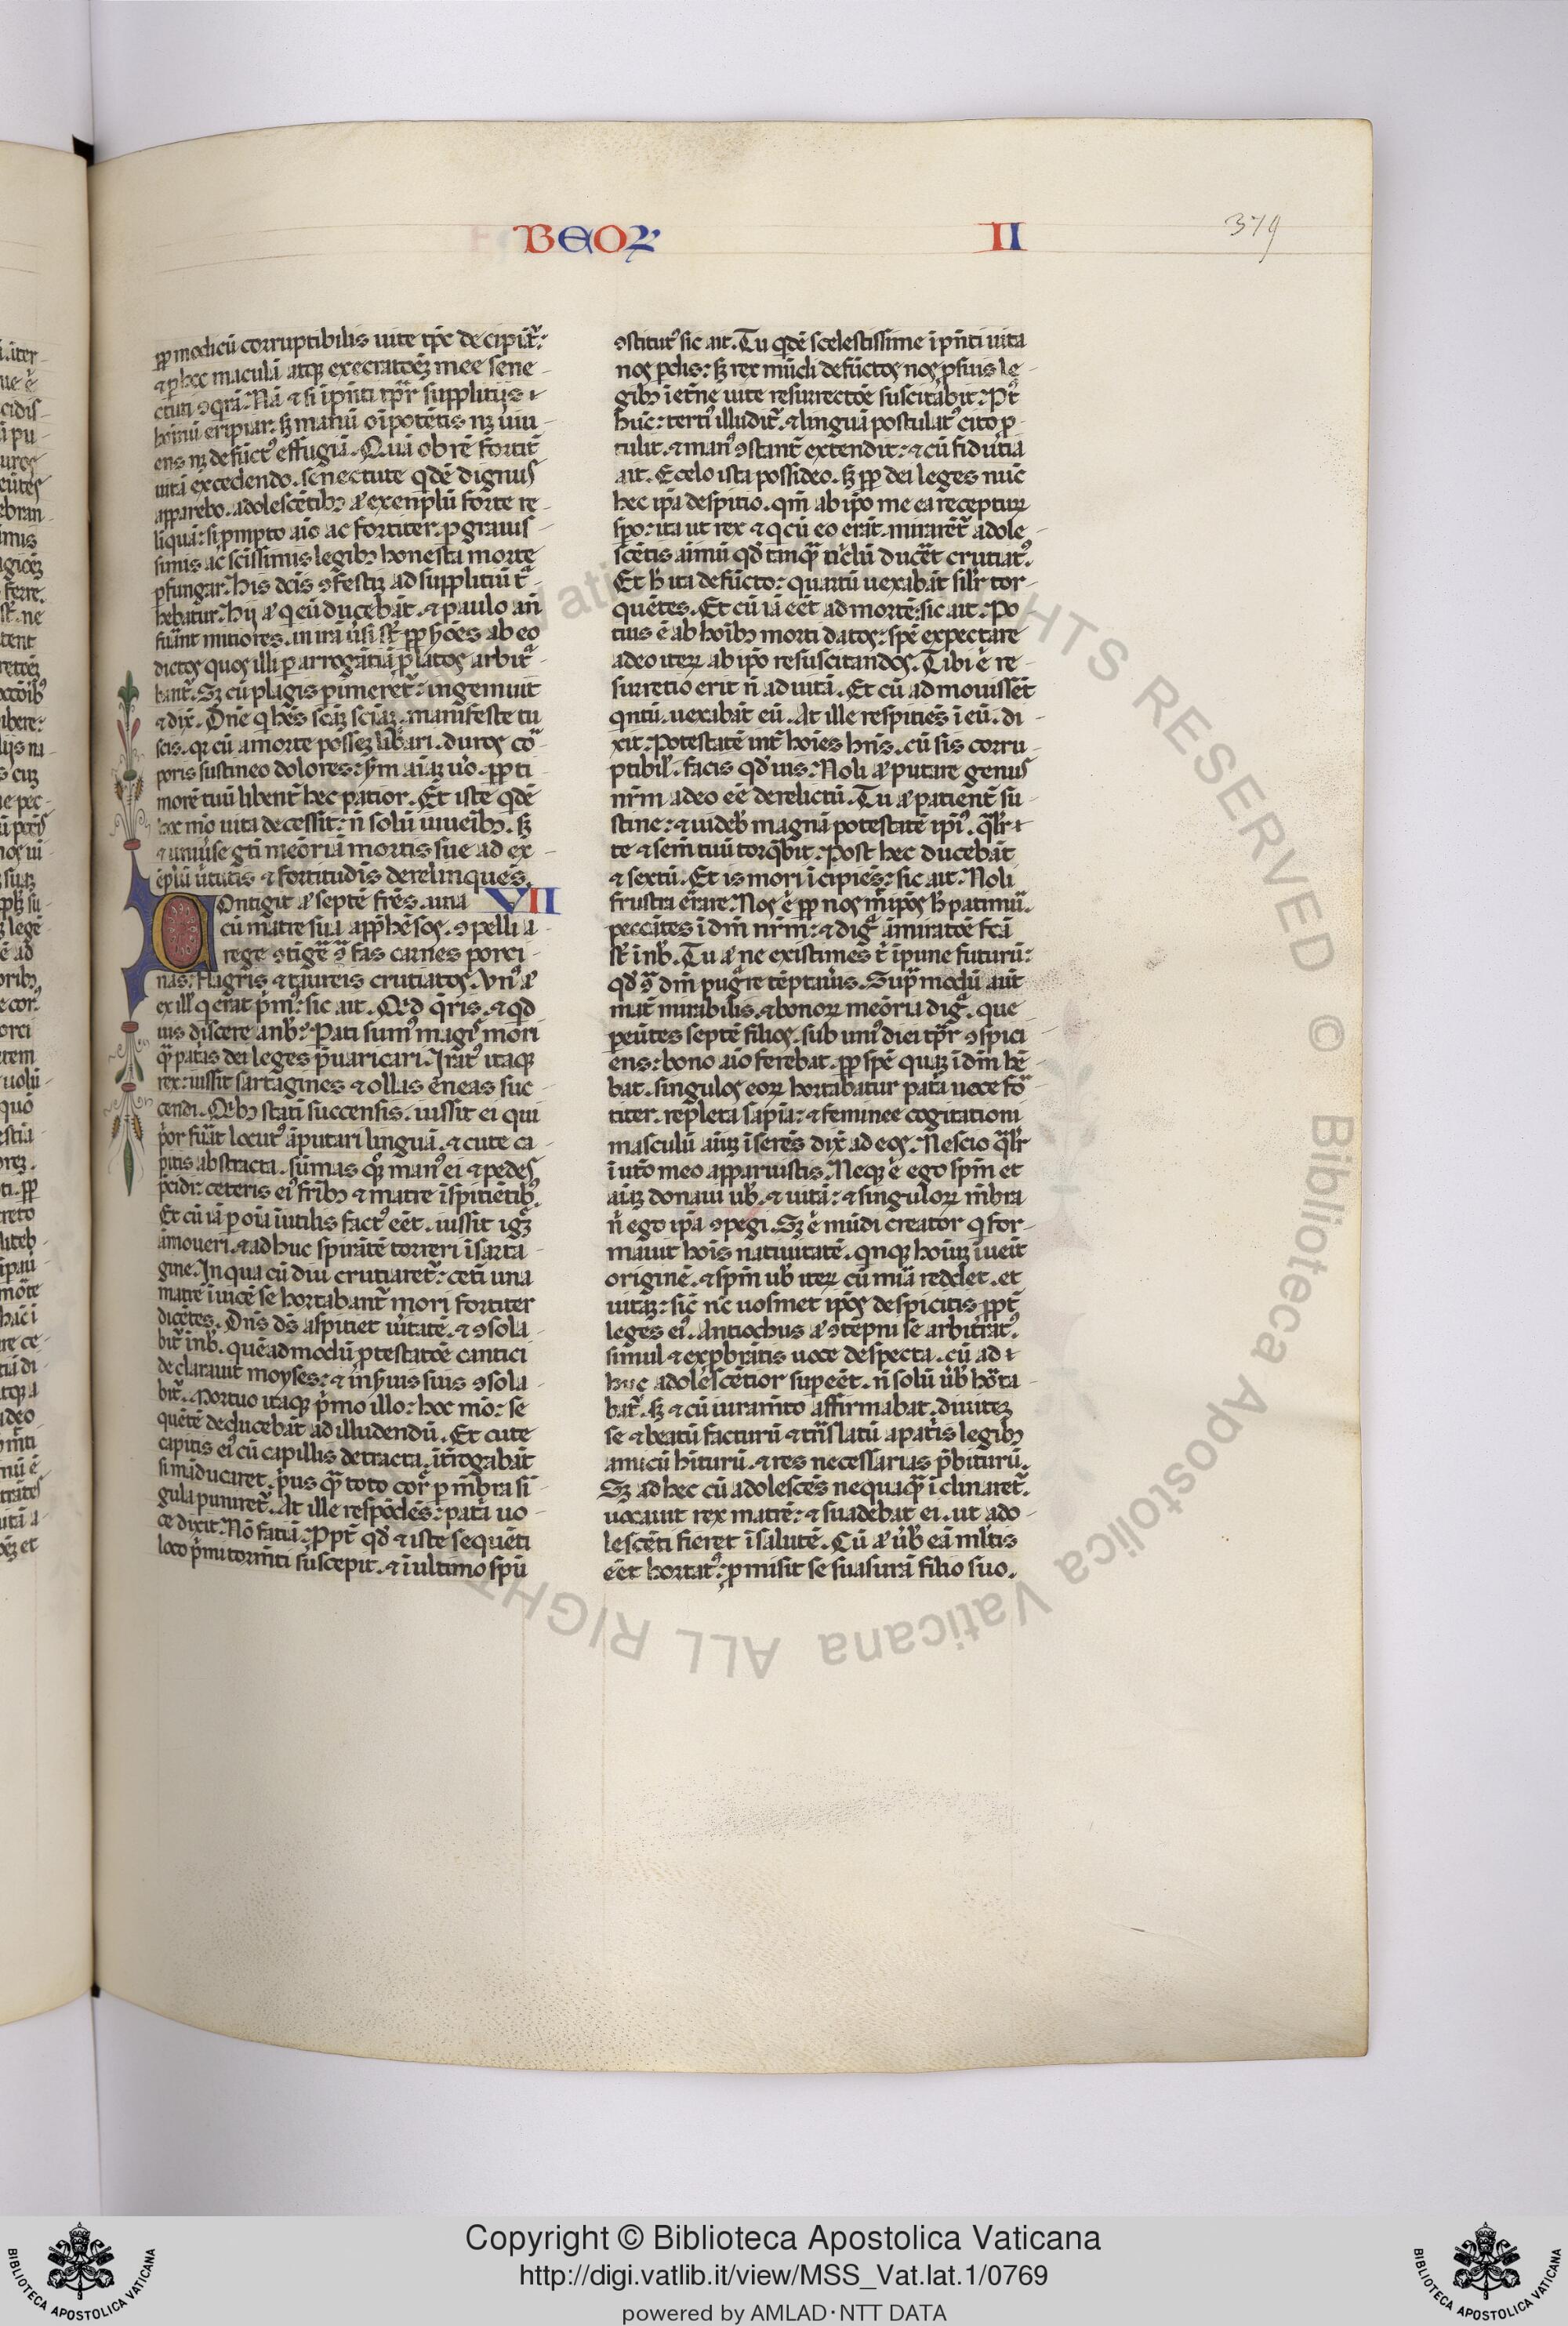 BEOꝜ II 379
ꝓp modicū corruptibilis uite tp̄c decipiāt̄:
⁊ ꝑ hec maculā atqꝫ execratōeꝫ mee sene-
ctuti ꝯqrā. Nā ⁊ si ip̄nti tp̄r supplitijs
hoīnū eripiar: sꝫ manū oīpotētis nꝫ uiu-
ens nꝫ defūctꝰ effugiā. Quā ob rē fortit̄
uitā excedendo. senectute qdē dignus
apparebo. adolescētibꝫ aꝰ exemplū forte re-
liquā: si prompto aīo ac fortiter: ꝓ grauis-
simis ac sc̄issimis legibꝫ honesta morte
ꝑfungar. His dc̄is ꝯfestiꝫ ad supplitiū tͣ-
hebatur. Hij aꝰ q eū ducebāt. ⁊ paulo an̄
fuānt mitiores. in irā ūsi st̄ ꝓp ẏōēs ab eo
dictos quos illi ꝑ arrogātiā ꝓlatos arbitͣ-
bant̄. Sꝫ cū plagis ꝑimeret̄: ingemuit
⁊ dix̄. Dn̄e q hn̄s sc̄āꝫ sciāꝫ. manifeste tu
scis. qꝛ cū a morte posseꝫ lib̄ari. duros cō-
poris sustineo dolores: ẏm aīaꝫ ūo. ꝓp ti-
morē tuū libent̄ hec patior. Et iste qdē
hoc mō uita decessit: n̄ solū iuuēibꝫ. sꝫ
⁊ uniūse gti meōriā mortis sue ad ex-
ēplū ūtutis ⁊ fortitudīs derelinquēs.
COntigit aꝰ septē fr̄es. una VII
cū matre sua app̄hēsos. ꝯpelli a
rege ꝯtigē ꝯͣ fas carnes porci-
nas: flagris ⁊ taureis crutiatos. Vnꝰ aꝰ
ex ill̄ q erat p̄mꝰ: sic ait. Qd q̄ris. ⁊ qd
uis discere a nob̄: Pati sumꝰ magis mori
qͣ patͣs dei leges p̄uaricari. Iratꝰ itaqꝫ
rex: iussit sartagines ⁊ ollas ēneas suc-
cendi. Qbꝫ stati succensis. iussit ei qui
por fūat locutꝰ āputari linguā. ⁊ cute ca-
pitis abstracta. sūmas qꝫ manꝰ ei ⁊ pedes
p̄cidi: ceteris eiꝰ frībꝫ ⁊ matre ispitiētibꝰ.
Et cū iā ꝑ oīa īutilis factꝰ eēt. iussit igꝫ
āmoueri. ⁊ ad huc spirātē torreri ī sarta-
gine. In qua cū diu crutiaret̄: ceti una
matrē īuicē se hortabant̄ mori fortiter
dicētes. Dn̄s ds̄ aspitiet ūitatē. ⁊ ꝯsola-
bit̄ ī nob̄. quēadmodū ꝓtestatōe cantici
declarauit moyses: ⁊ ī ẏuis suis ꝯsola-
bit̄. Mortuo itaqꝫ p̄mo illo: hoc mō: se-
quētē deducebāt ad illudendū. Et cute
capitis eiꝰ cū capillis detracta. īt̄rogabāt
si māducaret. p̄us qͣ toto corꝑ ꝑ mēbra sī-
gula puniret̄. At ille respōdēs: patͣ uo-
ce dixit. Nō fatiā. Ppt̄ qd̄ ⁊ iste sequēti
loco p̄mi torm̄ti suscepit. ⁊ ī ultimo spū
ꝯstitutꝰ sic ait. Tu qdē scelestissime ī p̄nti uita
nos ꝑdis: sꝫ rex mūdi defūctos nos ꝓ suis le-
gibꝫ ī et̄ne uite resurrectōe suscitabit. Pꝰ
hūc: tertiꝰ illudit̄. ⁊ linguā postulatꝰ cito ꝓ-
tulit. ⁊ manꝰ ꝯstant̄ extendit: ⁊ cū fidutia
ait. E celo ista possideo. sꝫ ꝓp dei leges nūc
hec ip̄a despitio. qm̄ ab ip̄o me ea recepturꝫ
spo: ita ut rex ⁊ q cū eo erāt. mirarēt̄ adole-
scētis aīmū qd̄ tanqͣ nichl̄ ducēt crutiatꝰ.
Et h̄ ita defūcto: quartū uexabāt silr̄ tor-
quētes. Et cū iā eēt ad mortē: sic ait. Po-
tius ē ab hoībꝫ morti datos: spē expectare
a deo iterꝫ ab ip̄o resuscitandos. Tibi ē re-
surretio erit n̄ ad uitā. Et cū admouissēt
qntū. uexabāt eū. At ille respitiēs ī eū. di-
xit. Potestatē int̄ hoīes hn̄s. cū sis corru-
ptibil̄. facis qd̄ uis: Noli aꝰ putare genus
nr̄m a deo eē derelictū. Tu aꝰ patient̄ su-
stine: ⁊ uideb̄ magnā potestatē ip̄iꝰ. qͣlr̄
te ⁊ sem̄ tuū torqͣbit. Post hec ducebāt
⁊ sextū. Et is mori īcipiēs: sic ait. Noli
frustra errare. Nos ē ꝓp nosm̄ipos h̄ patimū.
peccātes ī dm̄ nr̄m: ⁊ digͣ āmiratōe fc̄ā
st̄ ī nob̄. Tu aꝰ ne existimes t̄ īpune futurū:
qd̄ ꝯͣ dm̄ pugͣre tēptaūis. Supͣ modū aut̄
mat̄ mirabilis. ⁊ bonorꝫ meōria digͣ. que
peūtes septē filios. sub uniꝰ diei tp̄r ꝯspici-
ens: bono aīo ferebat. ꝓp spē quaꝫ ī dm̄ hē-
bat. singulos eorꝫ hortabatur patͣ uoce fō-
titer. repleta sapīa: ⁊ feminee cogitationi
masculū aīuꝫ īserēs dix̄ ad eos. Nescio qͣlr̄
ī utō meo apparuistis. Neqꝫ ē ego spm̄ et
aīaꝫ donaui ub̄. ⁊ uitā: ⁊ singulorꝫ mēbra
n̄ ego ip̄a ꝯpegi. Sꝫ ē mūdi creator q for-
mauit hoīs natiuitatē. qnqꝫ hoīuꝫ īueīt
originē. ⁊ spm̄ ub̄ iterꝫ cū mīa reddet. et
uitāꝫ: sic nc̄ uosmet ip̄os despicitis ꝓpt̄
leges eiꝰ. Antiochus aꝰ ꝯtēpni se arbitratꝰ.
simul ⁊ expbrātis uoce despecta. cū ad
huc adolescētior supeēt. n̄ solū ūb̄ hōta-
bat̄. sꝫ ⁊ cū iuram̄to affirmabat. diuiteꝫ
se ⁊ beatū facturū ⁊ tn̄slatū a patͣis legibꝫ
amicū hīturū. ⁊ res necessarias p̄biturū.
Sꝫ ad hec cū adolescēs nequaqͣ īclinaret̄.
uocauit rex matrē: ⁊ suadebat ei. ut ado-
lescēti fieret ī salutē. Cū aꝰ ūb̄ eā ml̄tis
eēt hortatꝰ: ꝓmisit se suasurā filio suo.
Copyright © Biblioteca Apostolica Vaticana
http://digi.vatlib.it/view/MSS_Vat.lat.1/0769
powered by AMLAD·NTT DATA